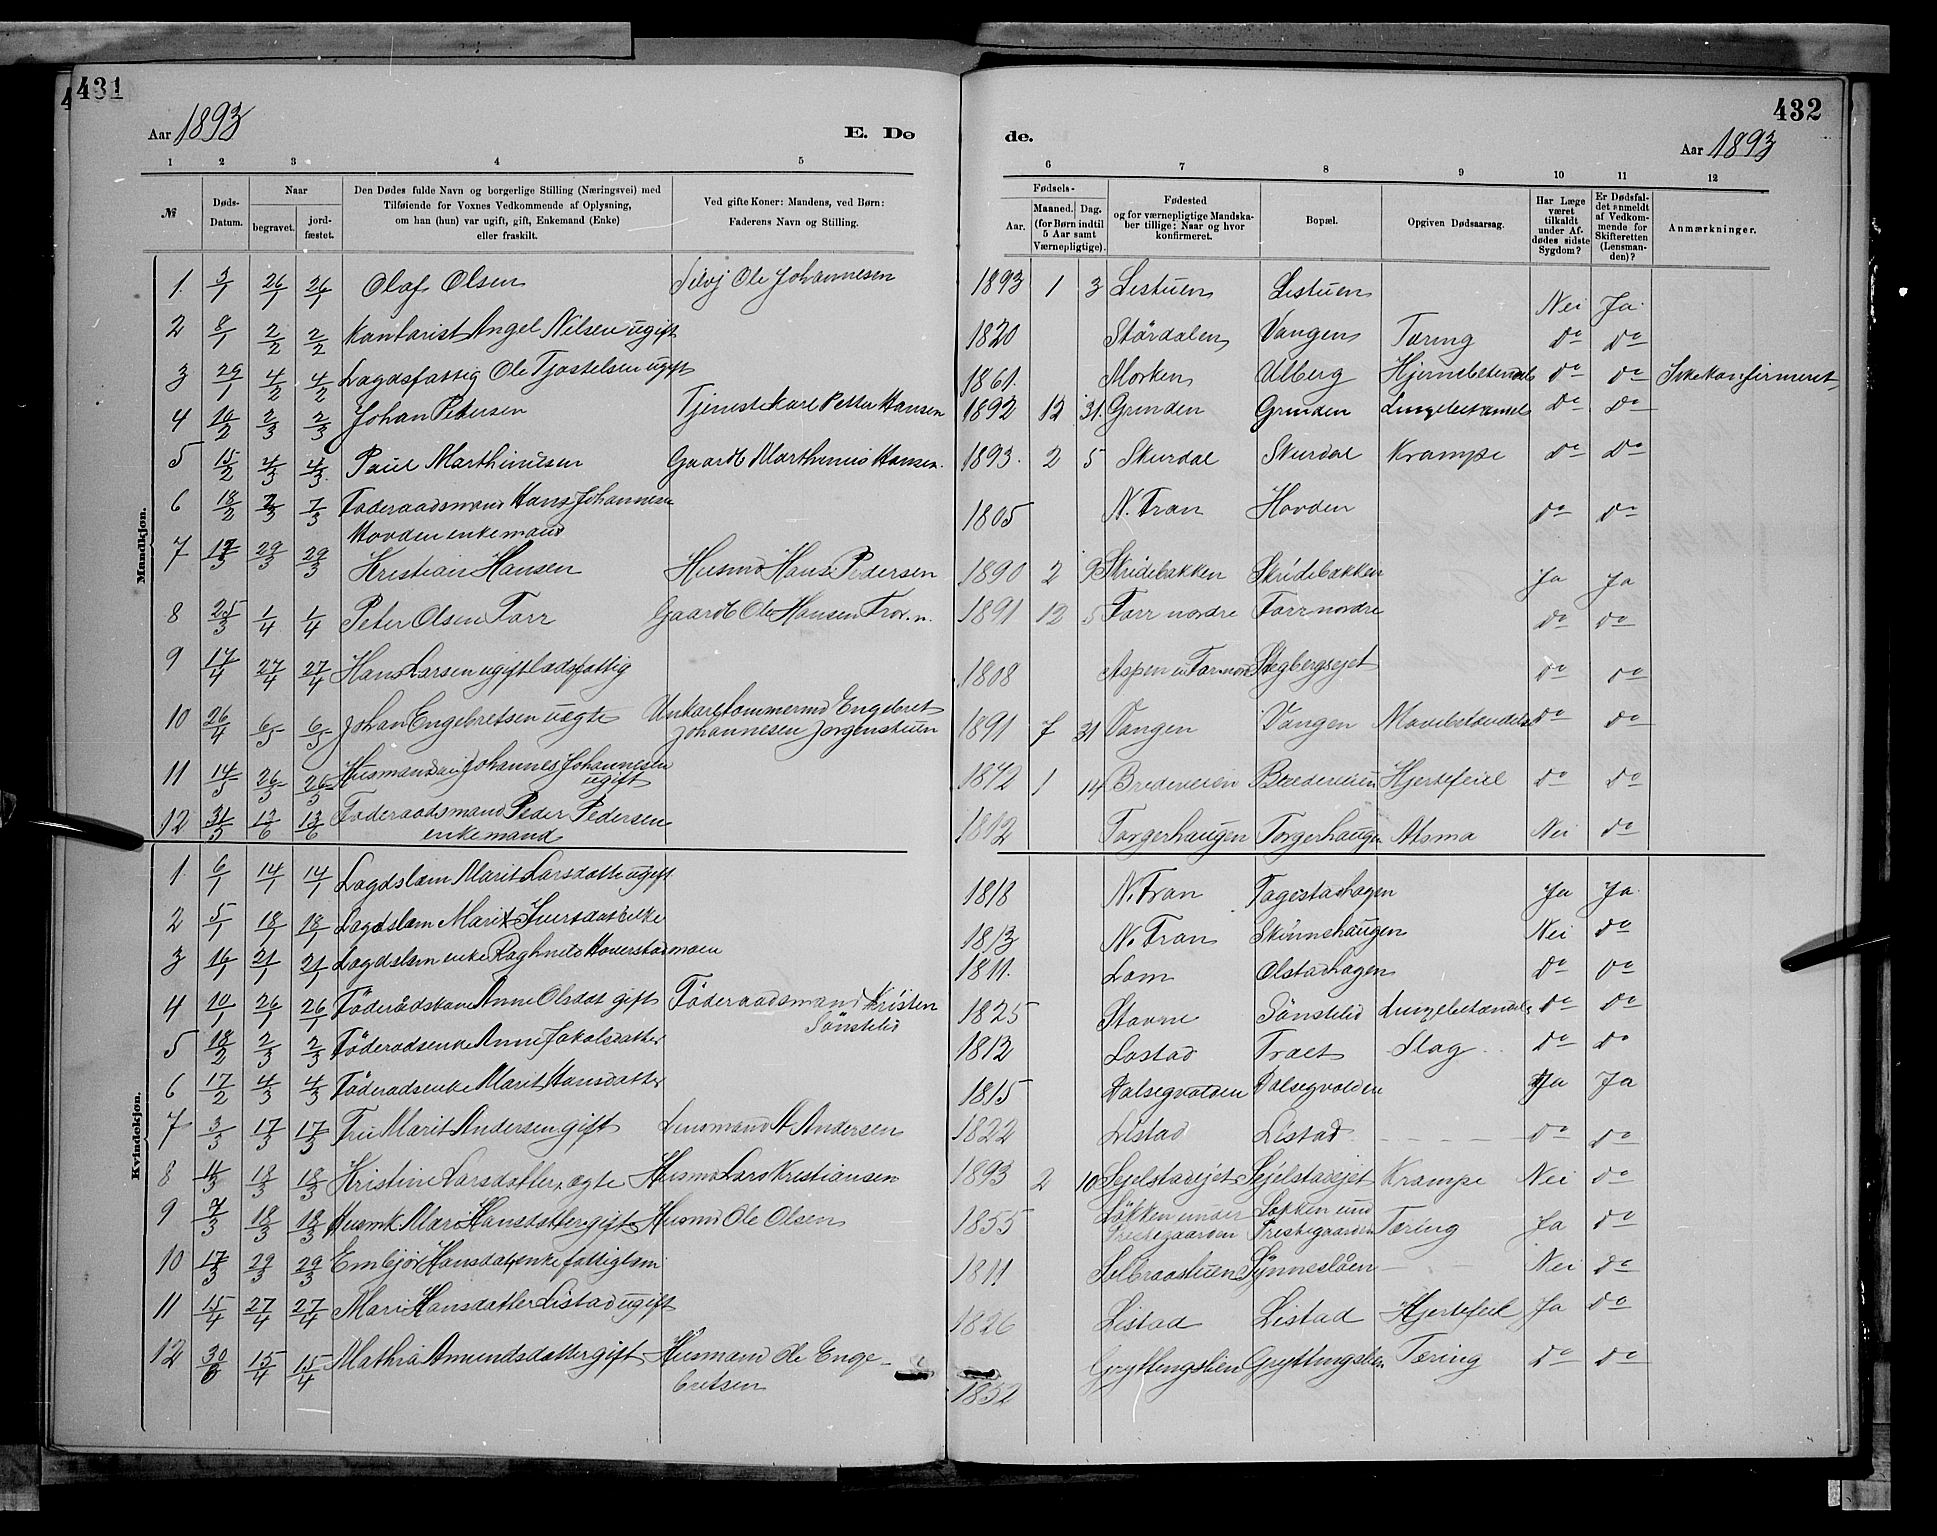 431
432
Aar 1893
E. Dø
de.
Aar 1893
1 2 3 4 5 6 7 8 9 10 11 12
№
Døds-
Datum.
Naar
begravet.
jord-
fæstet.
Den Dødes fulde Navn og borgerlige Stilling (Næringsvei) med
Tilføiende for Voxnes Vedkommende af Oplysning,
om han (hun) var ugift, gift, Enkemand (Enke)
eller fraskilt.
Ved gifte Koner: Mandens, ved Børn:
Faderens Navn og Stilling.
Fødsels-
Aar.
Maaned.
Dag.
(for Børn indtil
5 Aar samt
Værnepligtige).
Fødested
og for værnepligtige Mandska-
ber tillige: Naar og hvor
konfirmeret.
Bopæl.
Opgiven Dødsaarsag.
Har Læge
været
tilkaldt
under Af-
dødes sidste
Sygdom?
Er Dødsfal-
det anmeldt
af Vedkom-
mende for
Skifteretten
(Lensman-
den)?
Anmærkninger.
Mandkjøn.
1 3/1 26/1 26/1 Olaf Olsen Selvej Ole Johannesen 1893 1 3 Listuen Listuen Nei Ja
2 8/1 2/2 2/2 Kantorist Angel Nilsen ugift 1820 Stördalen Vangen Tæring Do Do
3 29/1 4/2 4/2 Lægdsfattig Ole Tjostelsen ugift 1861 Morken Ulberg Do Do Ikke konfirmeret
4 14/2 2/3 2/3 Johan Petersen Tjenestekarl Petter Hansen 1892 12 31 Grinden Grinden Do Do
5 15/2 4/3 4/3 Paul Marthinusen Gaardb Marthinus Hansen 1893 2 5 Skurdal Skurdal Krampe Do Do
6 18/2 7/3 7/3 Föderaadsmand Hans Johannesen
Hovden enkemand 1805 N. Fron Hovden Do Do
7 17/3 29/3 29/3 Kristian Hansen Husmd Hans Pedersen 1890 2 9 Skridebakken Skridebakken Ja Ja
8 25/3 1/4 1/4 Peter Olsen Forr Gaardb Ole Hansen 1891 12 5 Forr nordre Forr nordre Do Do
9 17/4 27/4 27/4 Hans Larsen ugift lædsfattig 1808 Stegbergsejet Do Do
10 26/4 6/5 6/5 Johan Engebretsen uægte Ungkarl tömmermd Engebret
Johannesen Jorgenstuen 1891 7 31 Vangen Vangen Do Do
11 14/5 26/5 26/5 Husmand Johannes Johannesen
ugift 1872 1 14 Bredeveien Bredeveien Hjertefeil Do Do
12 31/5 13/6 13/6 Föderaadsmand Peder Pedersen
enkemand 1812 Torgerhaugen Torgerhaugen Atsma Nei Do
Kvindekjøn.
1 6/1 14/1 14/1 Lægdslem Marit Larsdatter ugift 1818 N. Fron Fagestadhagen Ja Ja
2 5/1 18/1 18/1 Lægdslem Marit Iversdat enke 1813 N. Fron Skönneshaugen Nei Do
3 14/1 21/1 21/1 Lægdslem enke Raghnild Hoverstadmoen 1811 Lom Olstadhagen Do Do
4 10/1 26/1 26/1 Föderådskone Anne Olsdat gift Föderaadsmand Kristen
Sönstelid 1825 Stavne Sönstelid Lungebetændels Do Do
5 18/2 2/3 2/3 Föderadsenke Anne Jakobsdatter 1812 Lostad Traet Slag Do Do
6 17/2 4/3 4/3 Föderadsenke Marit Hansdatter 1815 Dalsegvolden Dalsegvolden Ja Ja
7 3/3 17/3 17/3 Fru Marit Andersen gift Lensmand A Andersen 1822 Listad Listad - - - Do Do
8 4/3 18/3 18/3 Kristine Larsdatter ægte Husmd Lars Kristiansen 1893 2 10 Sejelstadejet Sejelstadejet Krampe Nei Do
9 7/3 18/3 18/3 Husmk Mari Hansdatter gift Husmd Ole Olsen 1855 Løkken under
Prestegaarden Løkken und
Prestegaarden Tæring Ja Do
10 17/3 29/3 29/3 Embjör Hansdat enke fattiglem 1811 Solbraastuen Synneslåen - - Nei Do
11 15/4 27/4 27/4 Mari Hansdatter Listad ugift 1826 Listad Listad Hjertefeil Ja Do
12 15/4 15/4 Mathia Amundsdatter gift Husmand Ole Enge-
bretsen 1852 Gryttingslien Gryttingslien Tæring Do Do